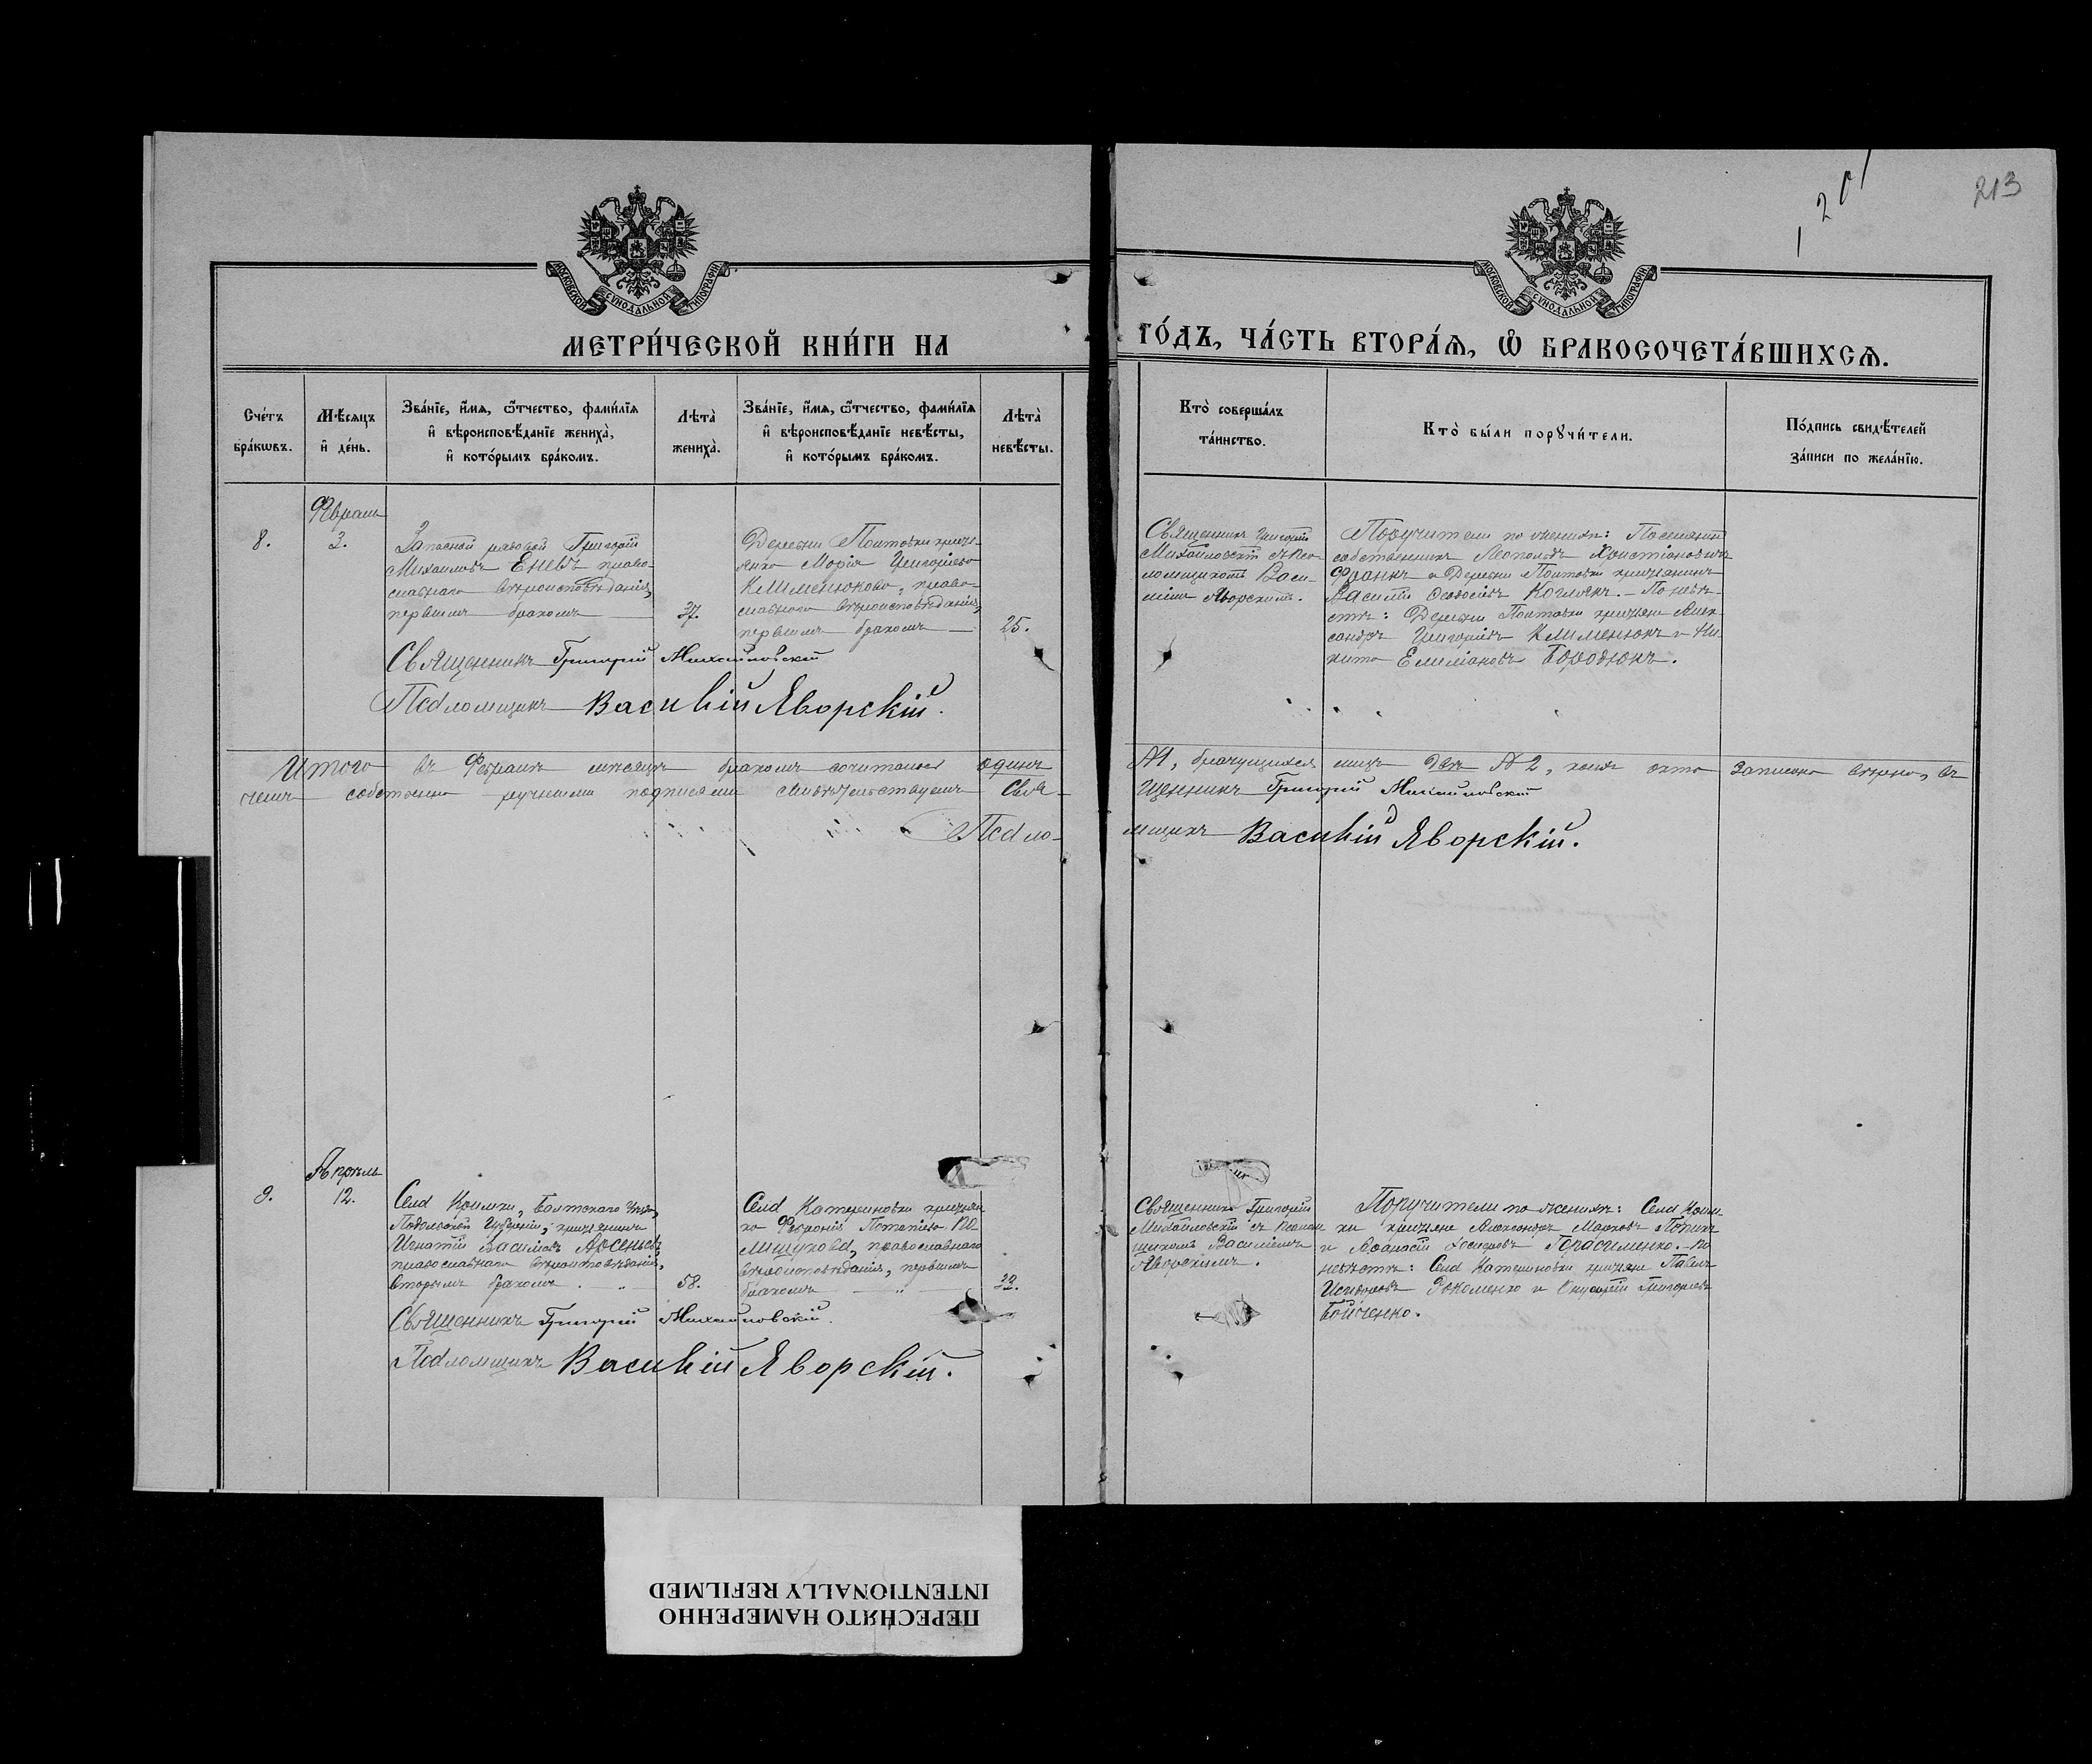 213
МОСКОВСКОЙ СѴНОДАЛЬНОЙ ТИПОГРАФІИ
МОСКОВСКОЙ СѴНОДАЛЬНОЙ ТИПОГРАФІИ
МЕТРИ́ЧЕСКОЙ КНИ́ГИ НА
ГО́ДЪ, ЧА́СТЬ ВТОРА́Ѧ, Ѽ БРАКОСОЧЕТА́ВШИХСѦ.
Сче́тъ
бра́кѡвъ.
Мѣ́сяцъ
и҆ де́нь.
Зва́нїе, и҆́мѧ, ѻ҆́тчество, фами́лїѧ
и҆ вѣроисповѣ́данїе жениха̀,
и҆ кото́рымъ бра́комъ.
Лѣта̀
жениха̀.
Зва́нїе, и҆́мѧ, ѻ҆́тчество, фами́лїѧ
и҆ вѣроисповѣ́данїе невѣ́сты,
и҆ кото́рымъ бра́комъ.
Лѣта̀
невѣ́сты.
Кто̀ соверша́лъ
та́инство.
Кто̀ бы́ли порꙋчи́тели.
По́дпись свидѣ́телей
за́писи по жела́нїю.
8.
3.
Запасной рядовой Григорій
Михаиловъ Еневъ право-
славнаго вѣроисповѣданія,
первымъ бракомъ
37.
Деревни крестья-
нка Марія Григоріева
Клименюкова, право-
славнаго вѣроисповѣданія,
первымъ бракомъ
25.
Священникъ Григорій
Михайловскій съ Пса-
ломщикомъ Васи-
ліемъ Яворскимъ.
Поручители по женихѣ: Поселянинъ
собственникъ Леопольдъ
Франкъ и Деревни крестьянинъ
Василій Феодосіевъ По невѣ-
стѣ: Деревни крестьяне Алек-
сандръ Григоріевъ Клименюкъ и Ни-
кита Емиліановъ Бородюкъ.
Священникъ Григорій Михайловскій
Псаломщикъ Василій Яворскій.
Итого въ Февралѣ мѣсяцѣ бракомъ сочиталось одинъ
№1, брачущихся лицъ два №2, записано вѣрно, въ
чемъ собственно ручными подписями свидѣтельствуемъ Свя-
щенникъ Григорій Михайловскій
Псало-
мщикъ Василій Яворскій.
Апрѣль
9.
12.
Села Крымки, Балтскаго Уѣзда,
Подольской Губерніи, крестьянинъ
Игнатій Арсеньевъ,
православнаго вѣроисповѣданія,
вторымъ бракомъ
58.
Села Катериновки крестьян-
ка Февронія
православнаго
вѣроисповѣданія, первымъ
бракомъ
Священникъ Григорій
Михайловскій съ Псалом-
щикомъ Василіемъ
Яворскимъ.
Поручители по женихѣ: Села Крым-
ки крестьяне Александръ Марковъ
и Аѳанасій Герасименко. По
невѣстѣ: Села Катериновки крестьяне Павелъ
Исидоровъ и Григоріевъ
Бойченко.
Священникъ Григорій Михайловскій.
Псаломщикъ Василій Яворскій.
ПЕРЕСНЯТО НАМЕРЕННО
INTENTIONALLY REFILMED